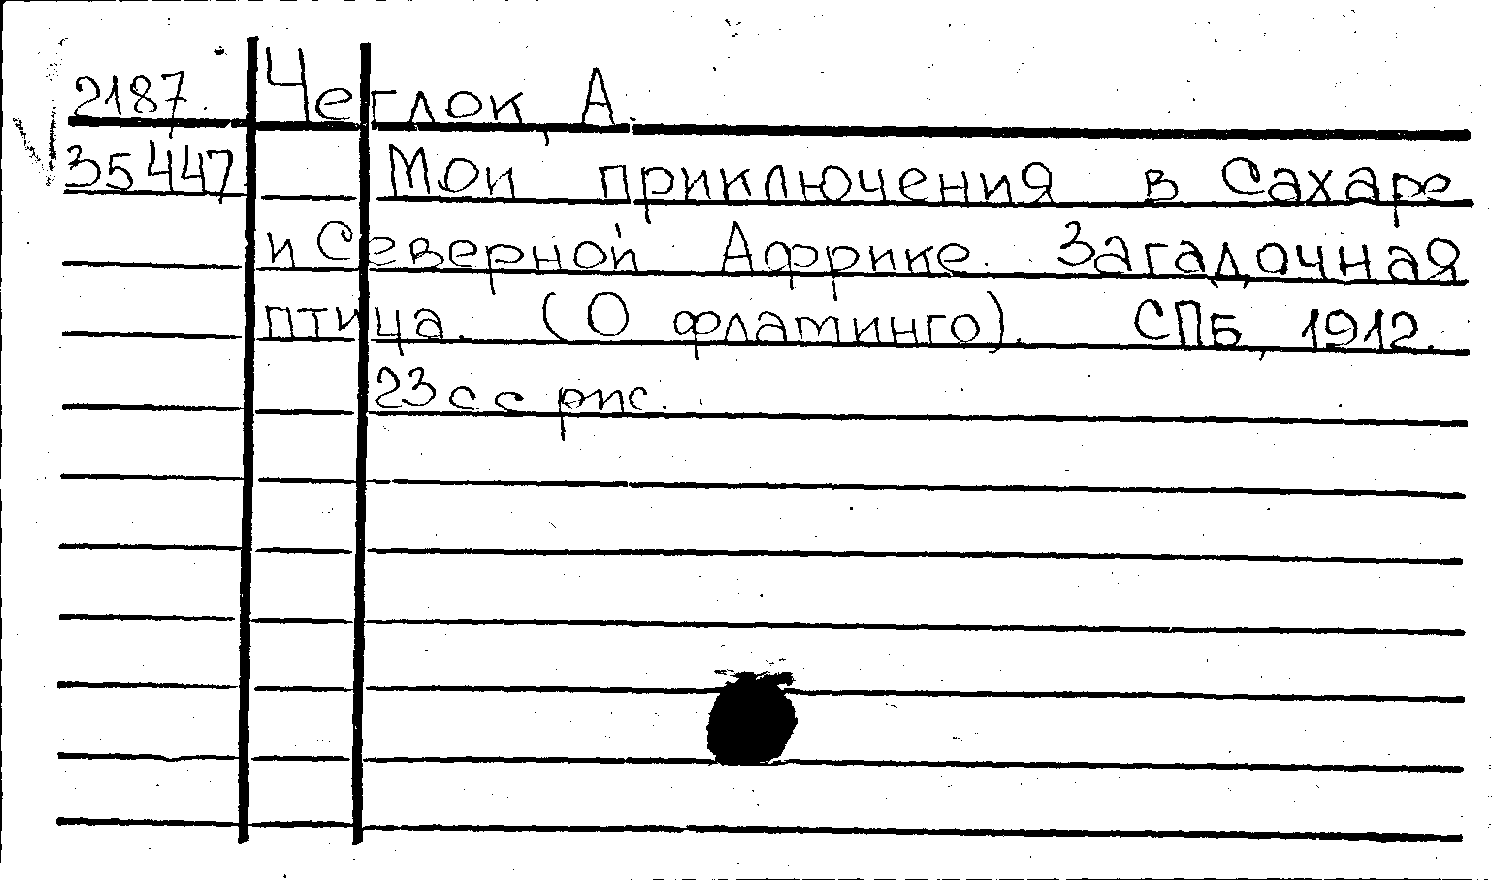 2187. Чеглок, А.
35447 Мои приключения в Сахаре
и Северной Африке. Загадочная
птица. (О фламинго). СПБ, 1912.
23 с с рис.